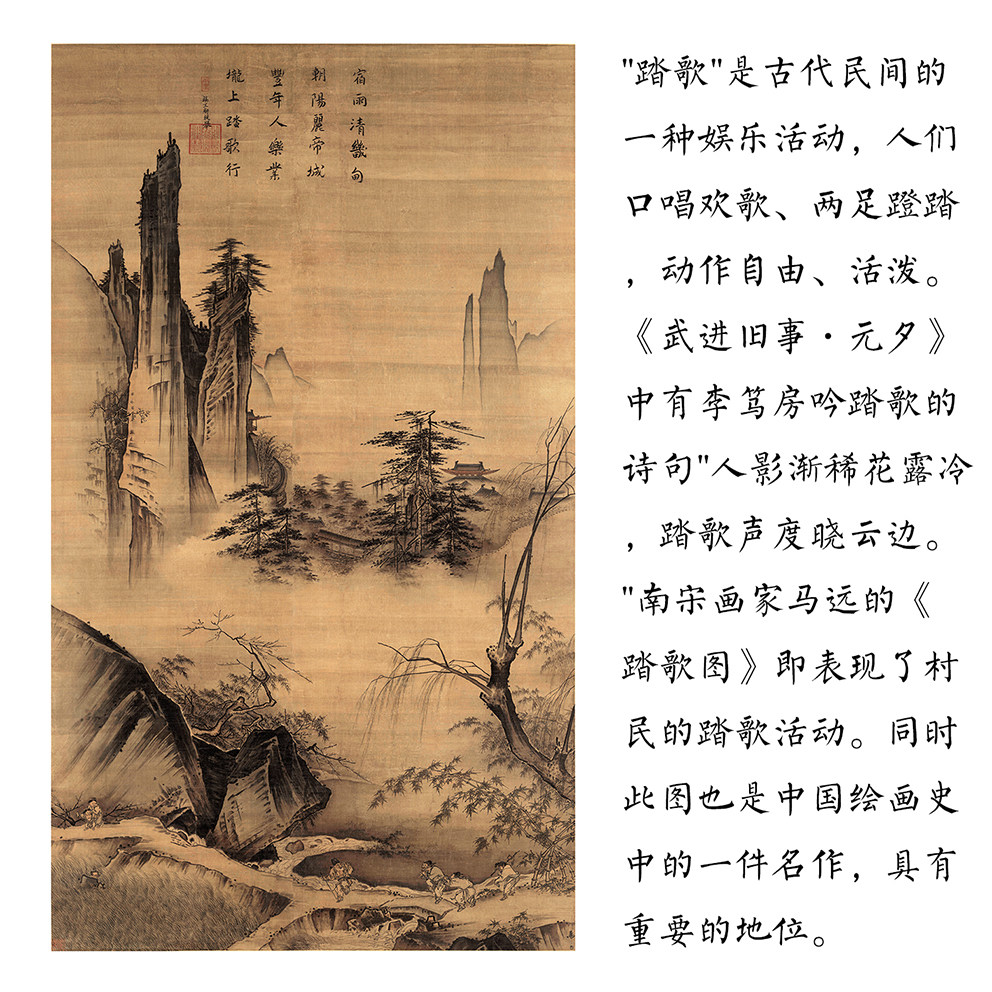 宿雨清畿甸
朝陽麗帝城
豐年人樂業
壠上踏歌行
"踏歌"是古代民间的
一种娱乐活动，人们
口唱欢歌、两足蹬踏
，动作自由、活泼。
《武进旧事·元夕》
中有李笃房吟踏歌的
诗句"人影渐稀花露冷
，踏歌声度晓云边。
"南宋画家马远的《
踏歌图》即表现了村
民的踏歌活动。同时
此图也是中国绘画史
中的一件名作，具有
重要的地位。